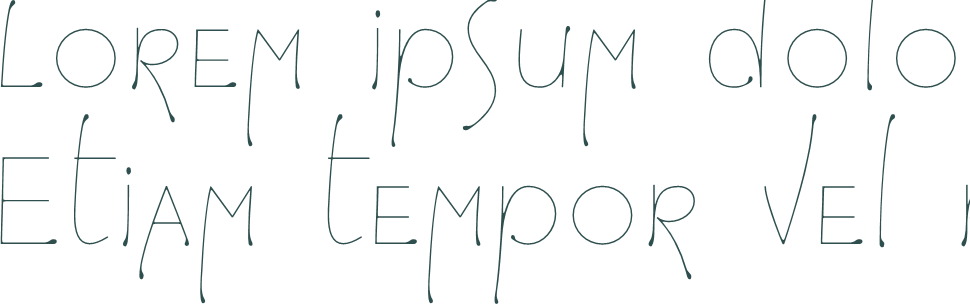 Lorem ipsum dolo
Etiam tempor vel